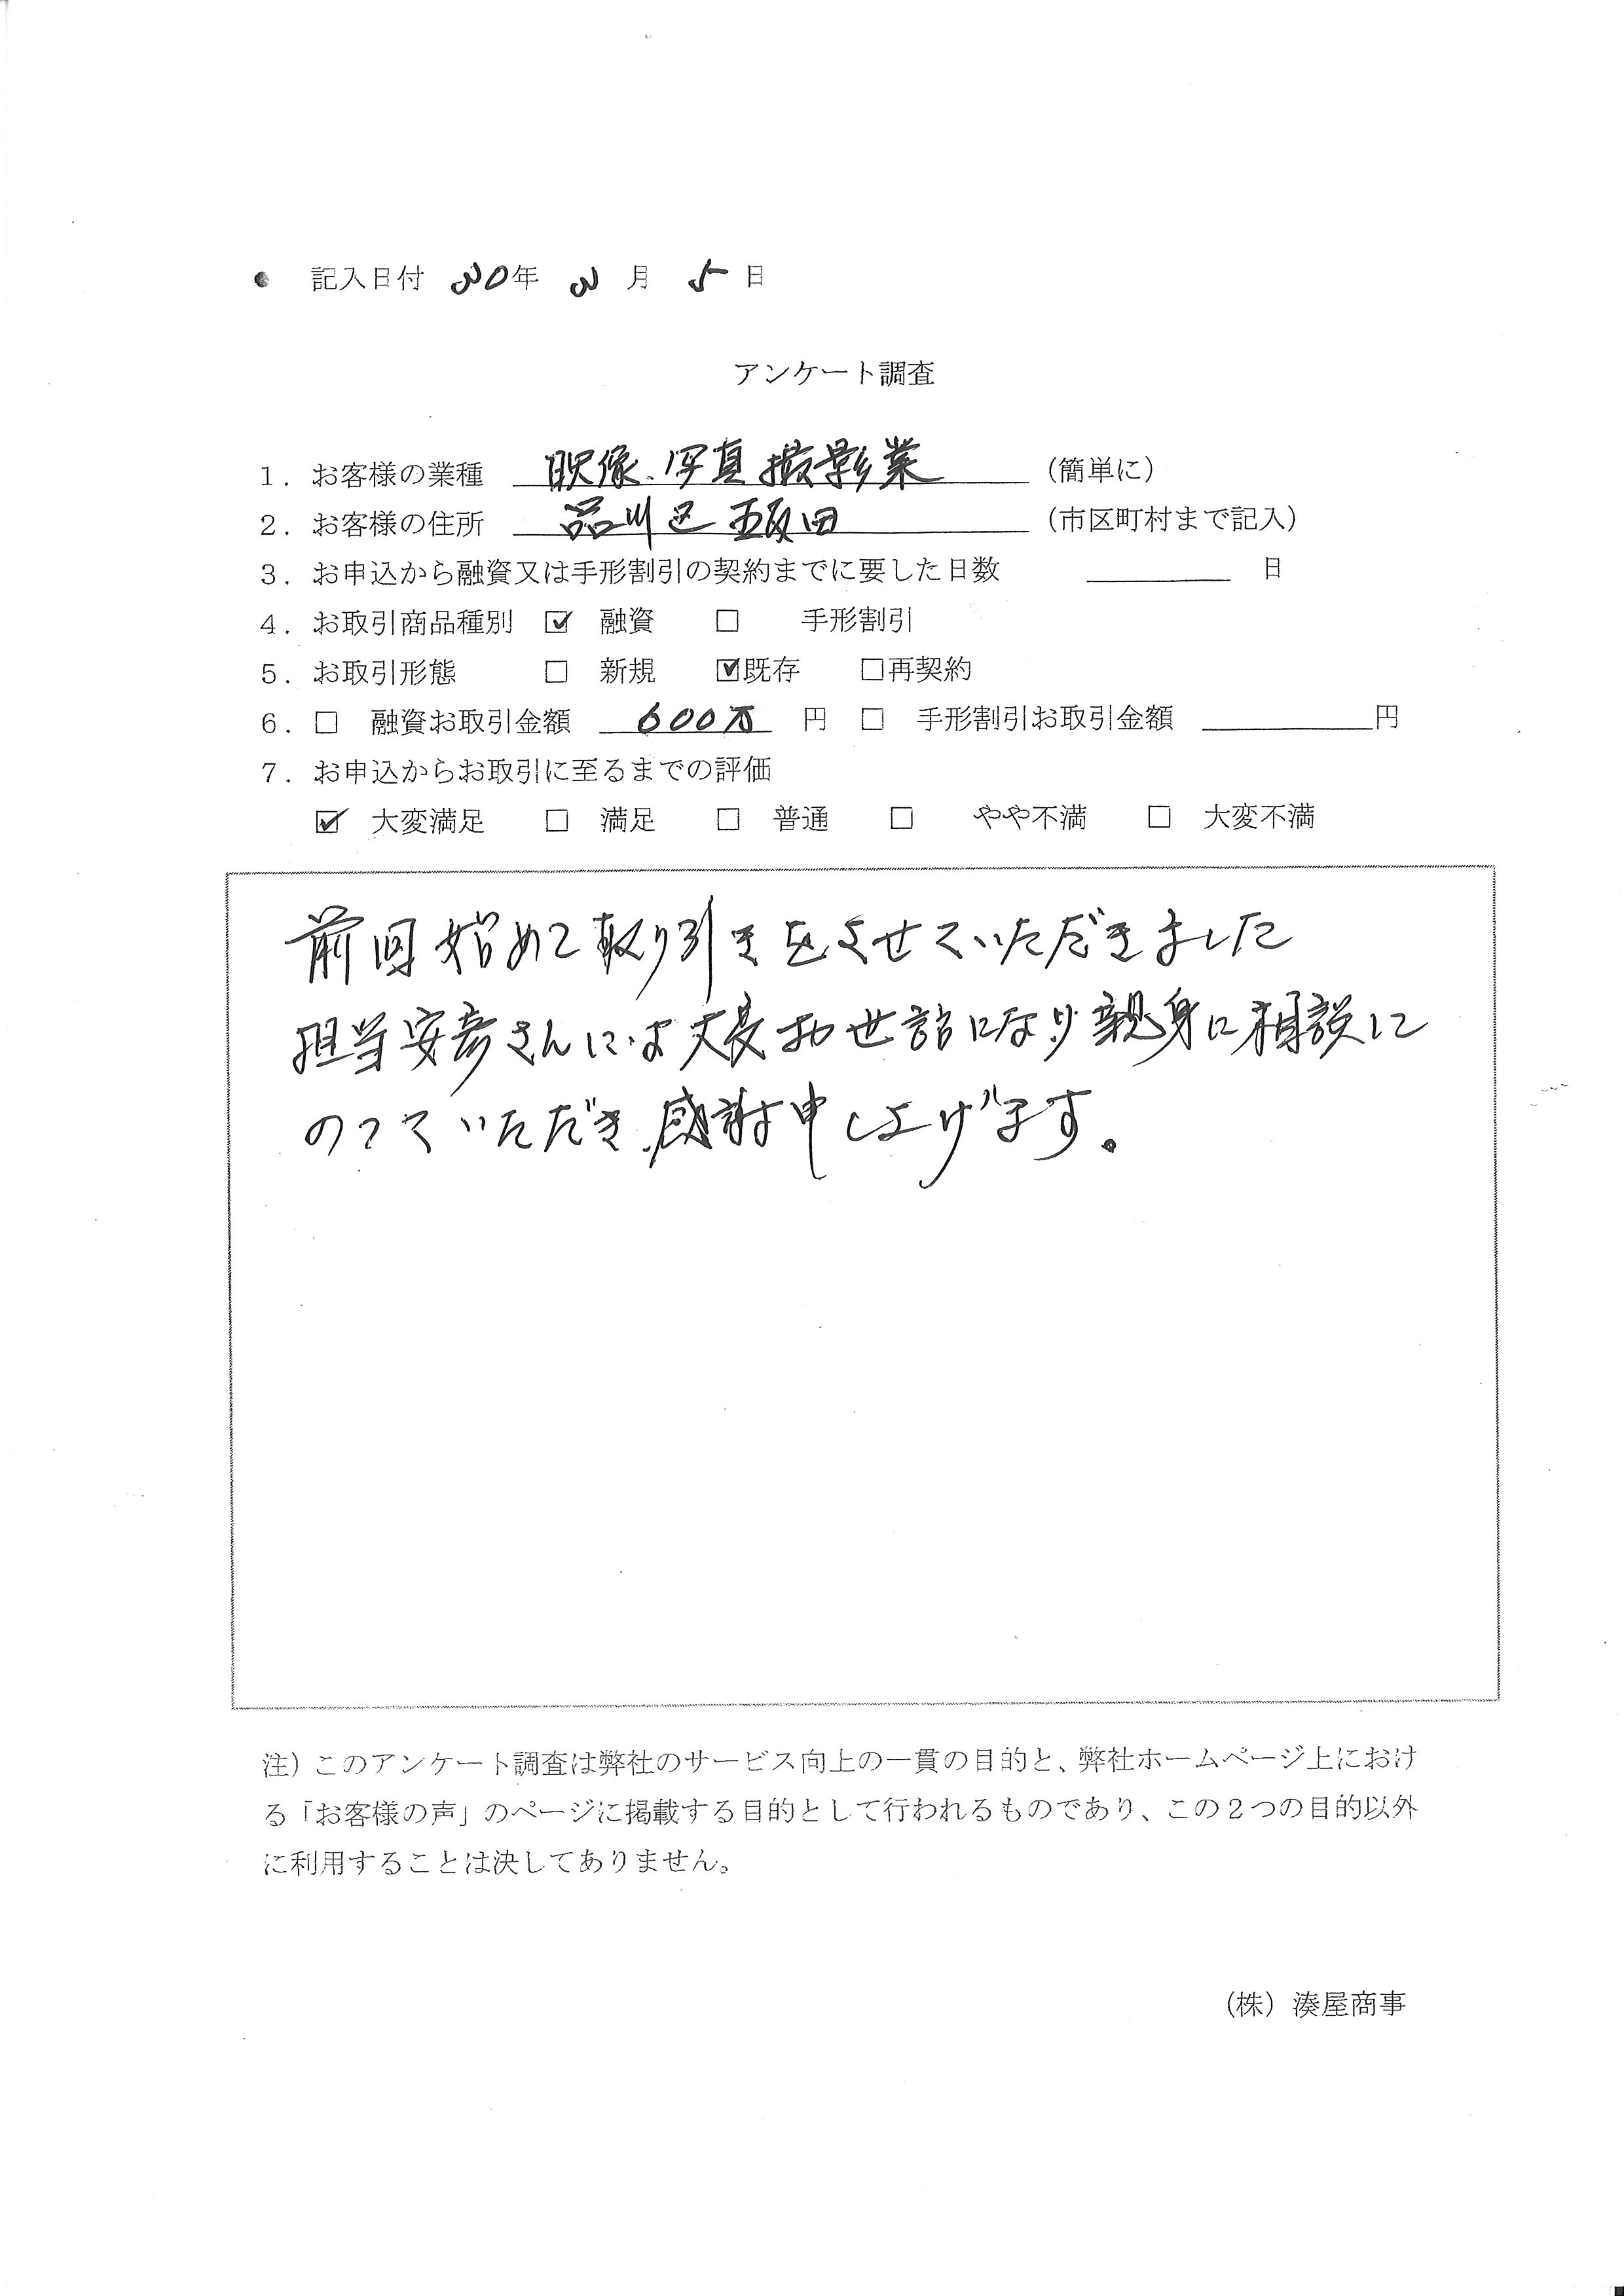 ● 記入日付 30年 3月 5日
アンケート調査
1．お客様の業種 映像、写真撮影業 （簡単に）
2．お客様の住所 品川区 五反田 （市区町村まで記入）
3．お申込から融資又は手形割引の契約までに要した日数 ＿＿＿ 日
4．お取引商品種別 ☑ 融資 □ 手形割引
5．お取引形態 □ 新規 ☑既存 □再契約
6．□ 融資お取引金額 600万 円 □ 手形割引お取引金額 ＿＿＿円
7．お申込からお取引に至るまでの評価
☑ 大変満足 □ 満足 □ 普通 □ やや不満 □ 大変不満
前回始めて取り引きをさせていただきました
担当安彦さんには大変お世話になり親身に相談に
のっていただき、感謝申し上げます。
注）このアンケート調査は弊社のサービス向上の一貫の目的と、弊社ホームページ上におけ
る「お客様の声」のページに掲載する目的として行われるものであり、この２つの目的以外
に利用することは決してありません。
（株）湊屋商事